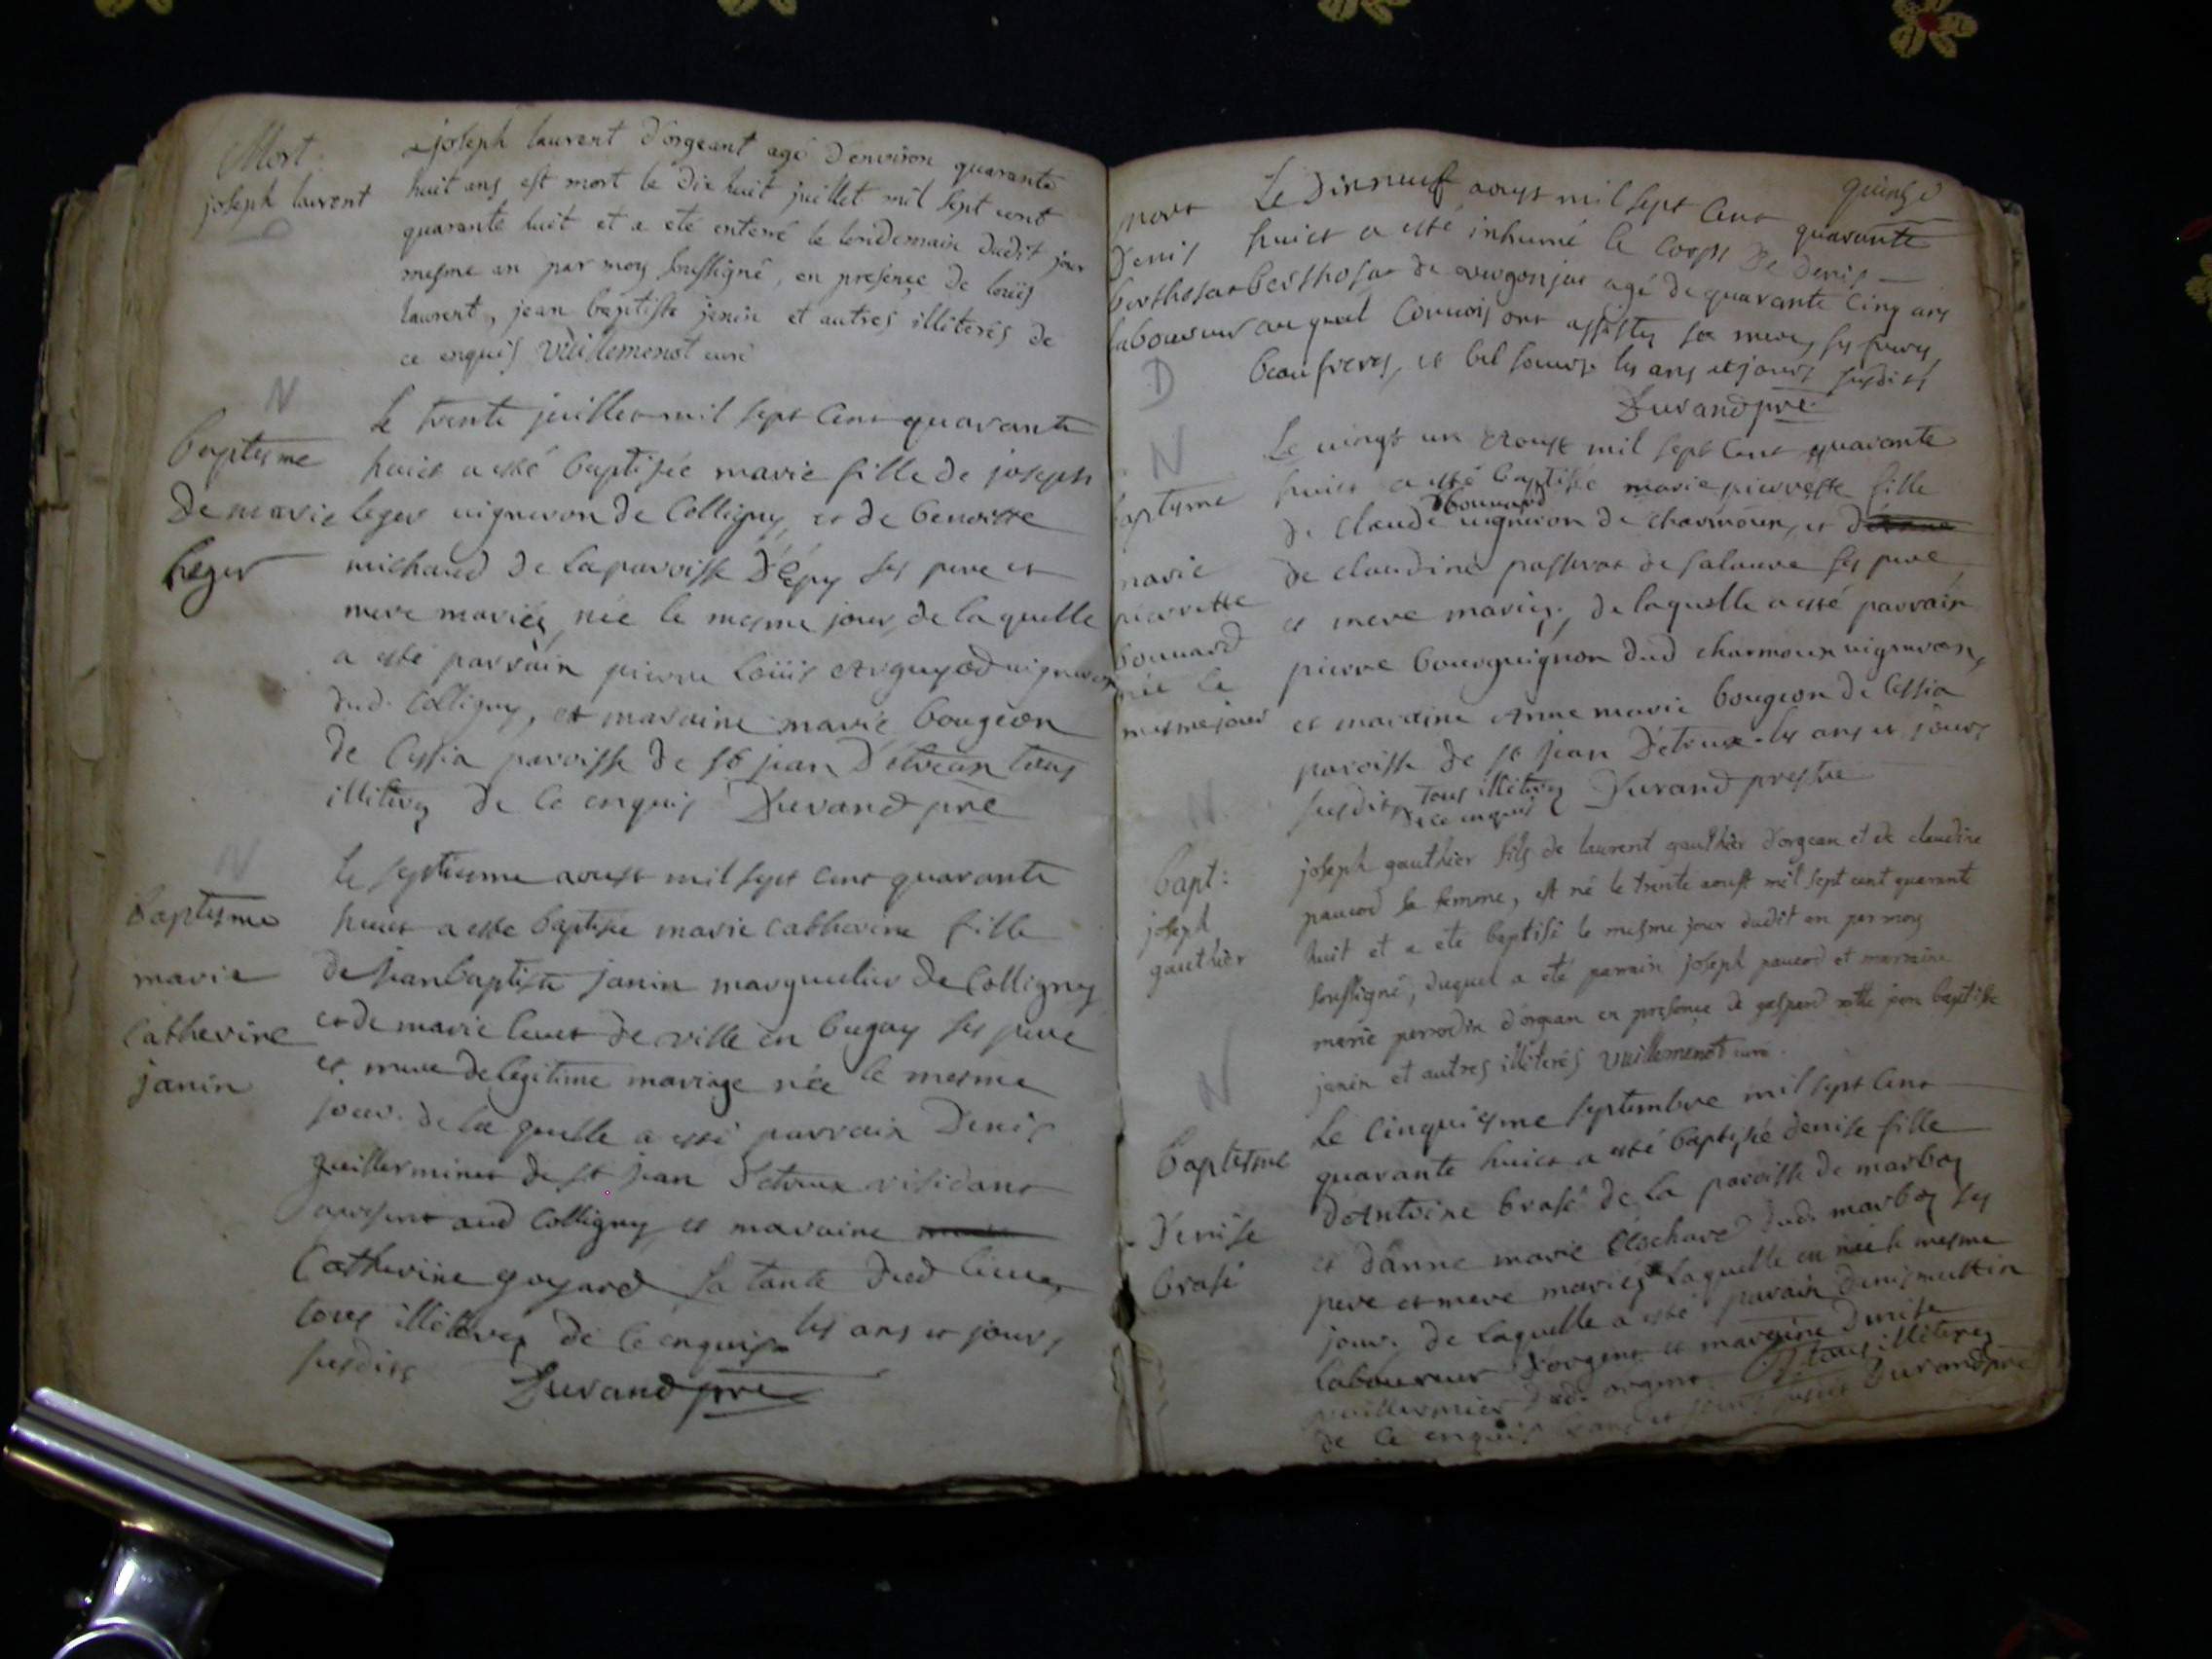 Mort
joseph laurent
joseph laurent d'orgeant agé d'environ quarante
huit ans est mort le dix huit juillet mil sept cent
quarante huit et a eté enterré le lendemain dudit jour
mesme an par moy soussigné, en presence de loüis
laurent, jean baptiste jenin et autres illiterés de
ce enquis Vuillemenot curé
N
baptesme
De marie
leger
Le trente juillet mil sept cent quarante
huict a esté baptisée marie fille de joseph
leger uigneron de Colligny, et de benoitte
michaud de la paroisse D'épy ses pere et
mere mariés, née le mesme jour, de laquelle
a esté parrain pierre loüis uigneron
dud. Colligny, et maraine marie bougeon
de Cessia paroisse de st jean D'étreux tous
illiterez de ce enquis Durand pre
N
baptesme
marie
catherine
janin
Le septiesme aoust mil sept cent quarante
huict a esté baptisée marie catherine fille
de jean baptiste janin marguelier de Colligny
et de marie de ville en bugey ses pere
et mere de legitime mariage née le mesme
jour. de la quelle a esté parrain Denis
guillerminet de st jean D'etreux residant
apresent aud Colligny et maraine
Catherine goyard sa tante dud lieu,
tous illiterez de ce enquis les ans et jours
susdits Durand pre
quinze
mort
Denis
berthosat
laboureur
D
Le dixneuf aoust mil sept cent quarante
huict a esté inhumé le corps de Denis
berthosat de uergonjat agé de quarante cinq ans
au quel convois ont assistez sa mere, ses freres,
beaufreres, et bel soeurs les ans et jours susdits
Durand pre
N
baptesme
marie
pierrette
bouuard
née le
mesme jour
Le uingt un aoust mil sept cent quarante
huict a esté baptisée marie pierrette fille
bouuard
de claude uigneron de charmoux, et
de claudine passerat de salaure ses pere
et mere mariez, de laquelle a esté parrain
pierre bourguignon dud charmoux uigneron,
et maraine Anne marie bougeon de Cessia
paroisse de st jean D'étreux les ans et jours
susdits tous illiterez Durand prestre
de ce enquis
N
bapt:
joseph
gauthier
joseph gauthier fils de laurent gauthier d'orgean et de claudine
paucod sa femme, est né le trente aoust mil sept cent quarante
huit et a eté baptisé le mesme jour dudit an par moy
soussigné, duquel a eté parrain joseph paucod et marraine
marie perrodin d'orgean en presence de gaspard jean baptiste
jenin et autres illiterés Vuillemenot curé.
N
baptesme
Denise
brasé
Le cinquiesme septembre mil sept cent
quarante huict a esté baptisée denise fille
d'Antoine brasé de la paroisse de marboz
et d'anne marie dud. marboz ses
pere et mere mariés laquelle en née le mesme
jour. de laquelle a esté parain denis
laboureur d'orgent et maraine Denise
dud. orgent. tous illiterez
de ce enquis les ans et jours susdits Durand pre